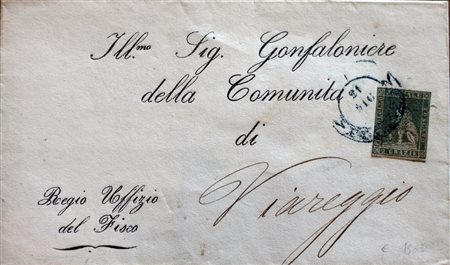 Ill.mo Sig. Gonfaloniere
della Comunità
di
Viareggio
Regio Uffizio
del Fisco
21
GIU